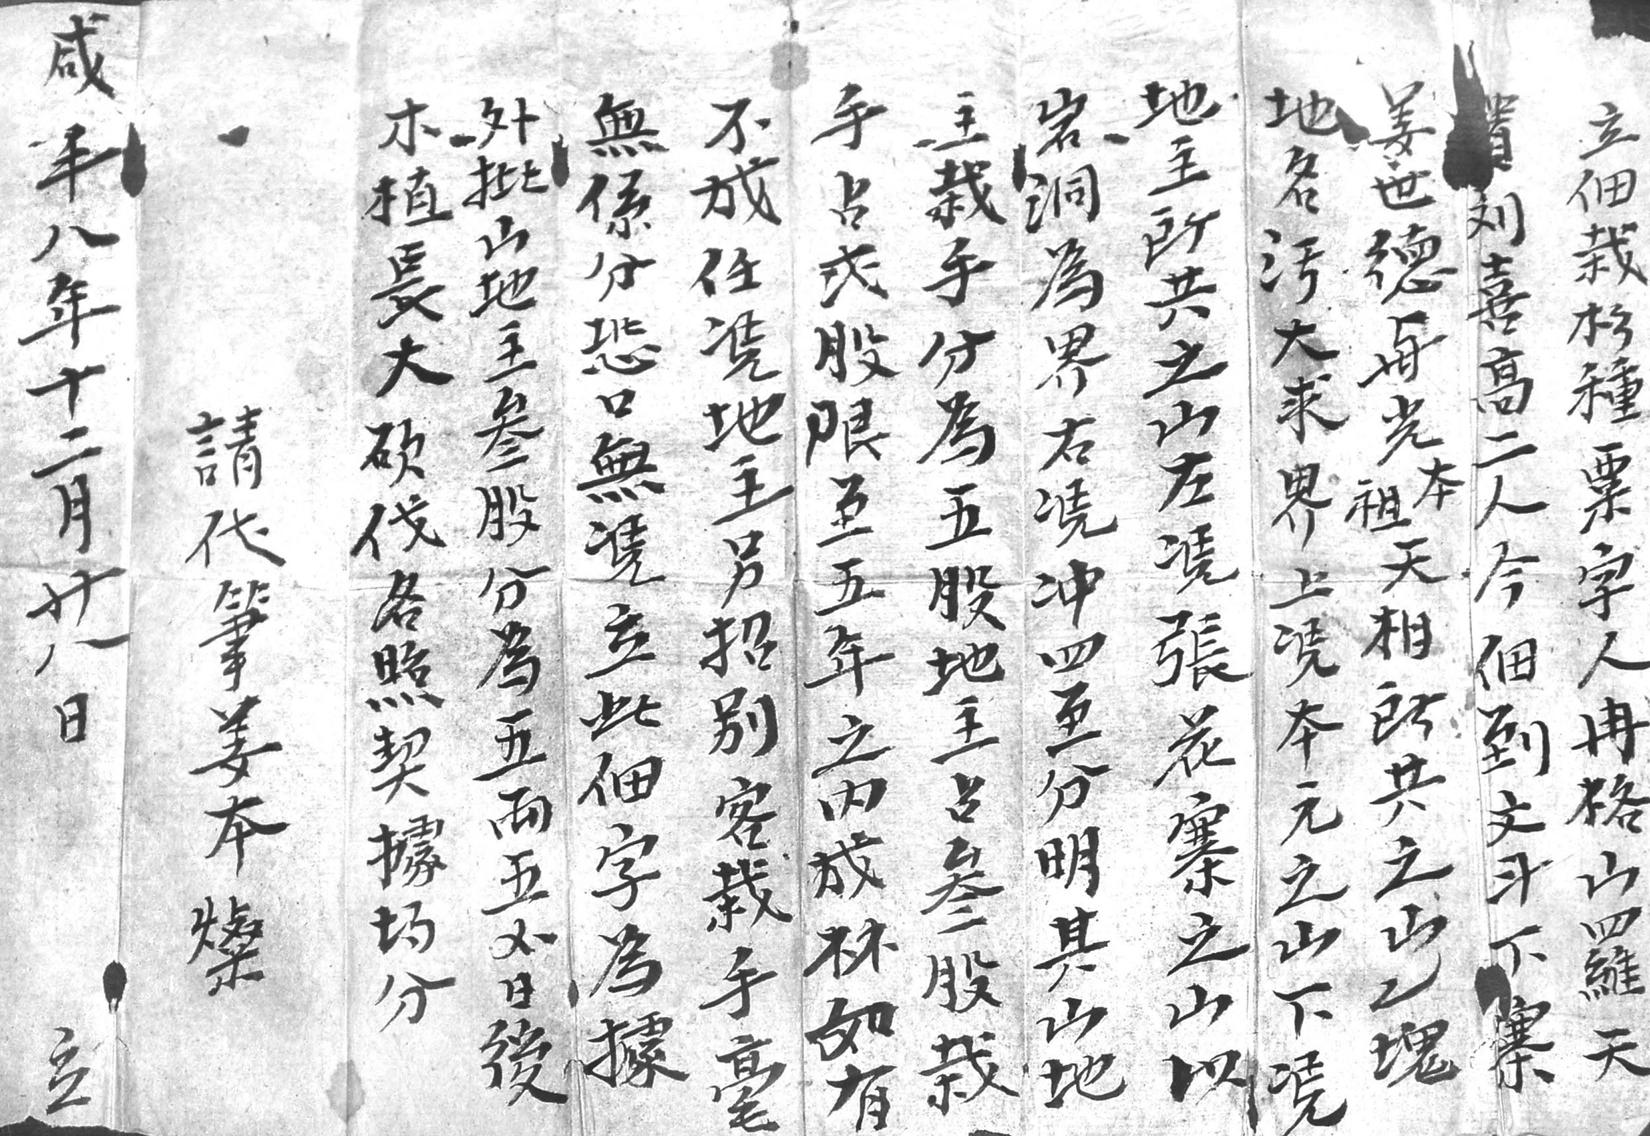 立佃栽杉種粟字人冉格山羅天
貴刘喜高二人今佃到文斗下寨
姜世德舟光本祖天相所共之山乙塊
地名污大求界上凴本元之山下凴
地主所共之山左凴張花寨之山以
岩洞為界右凴冲四至分明其山地
主栽手分為五股地主占叁股栽
手占弍股限至五年之内成林如有
不成任凴地主另招别客栽手毫
無係分恐口無凴立此佃字為據
外批山地主叁股分為五両五 日後
木植長大砍伐各照契據均分
請代筆姜本燦
咸 年八年十二月廿八日 立